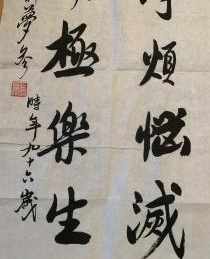 煩惱滅
極樂生
夢參 時年九十六歲